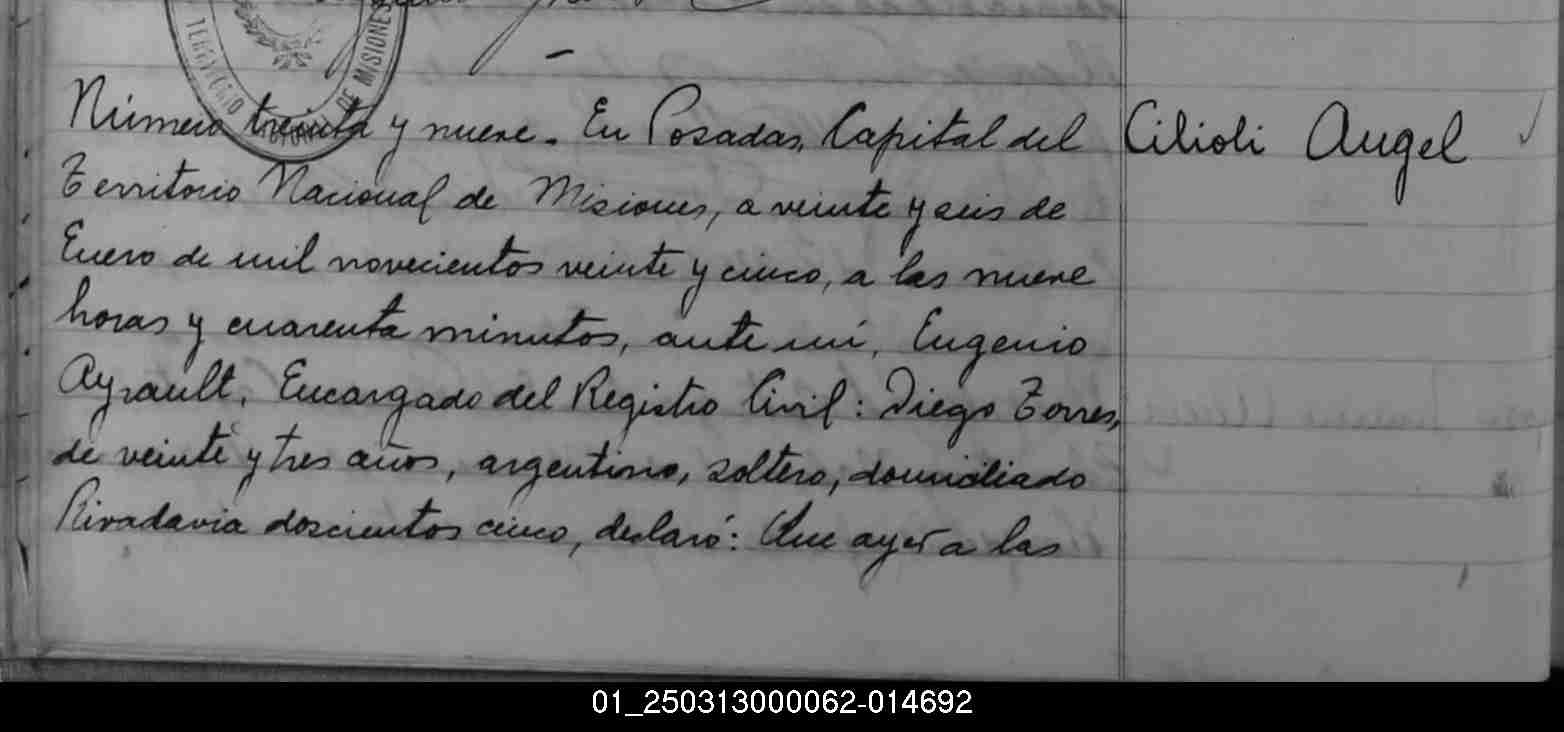 TERRITORIO DE MISIONES
Número treinta y nueve. En Posadas, Capital del
Cilioli Angel
Territorio Nacional de Misiones, a veinte y seis de
Enero de mil novecientos veinte y cinco, a las nueve
horas y cuarenta minutos, ante mí, Eugenio
Ayrault, Encargado del Registro Civil: Diego Torres,
de veinte y tres años, argentino, soltero, domiciliado
Rivadavia doscientos cinco, declaró: Que ayer a las
01_250313000062-014692